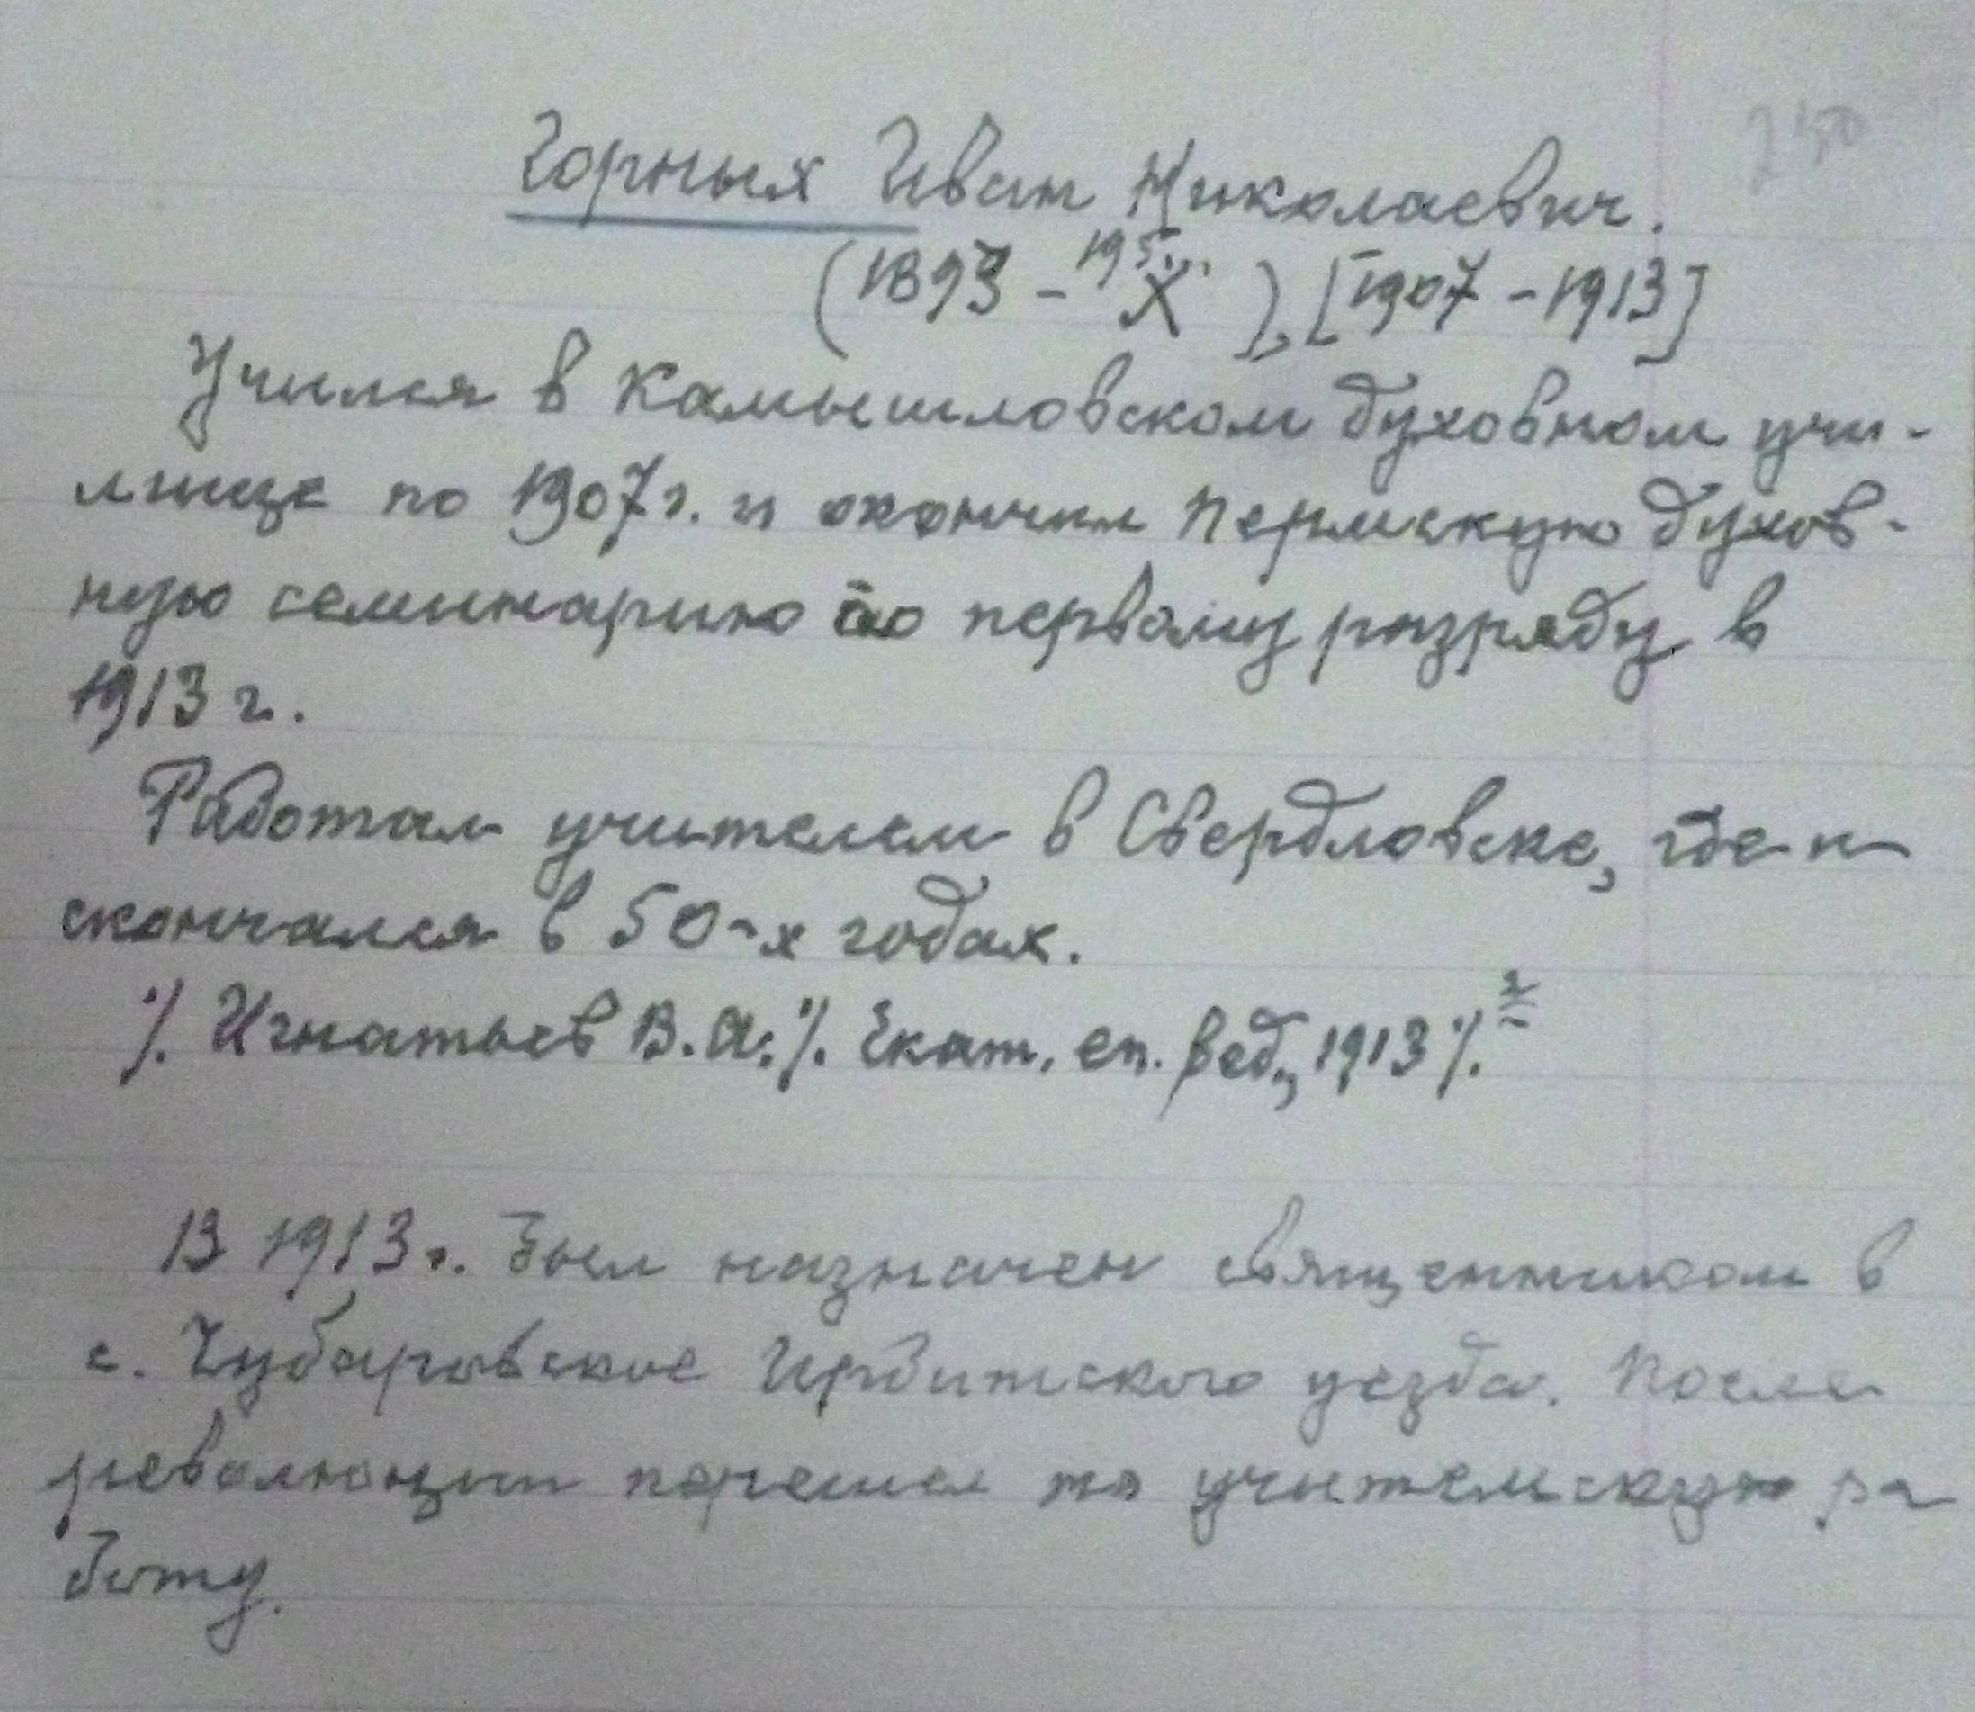 Горных Иван Николаевич.
(1893 – 195... X), [1907 – 1913]
Учился в Камышловском духовном учи-
лище по 1907 г. и окончил Пермскую духов-
ную семинарию по первому разряду в
1913 г.
Работал учителем в Свердловске, где и
скончался в 50-х годах.
%. Игнатьев В.А.; %. Екат. еп. вед, 1913 %. 2
В 1913 г. был назначен священником в
с. Чубаровское Ирбитского уезда. После
революции перешел на учительскую ра
боту.